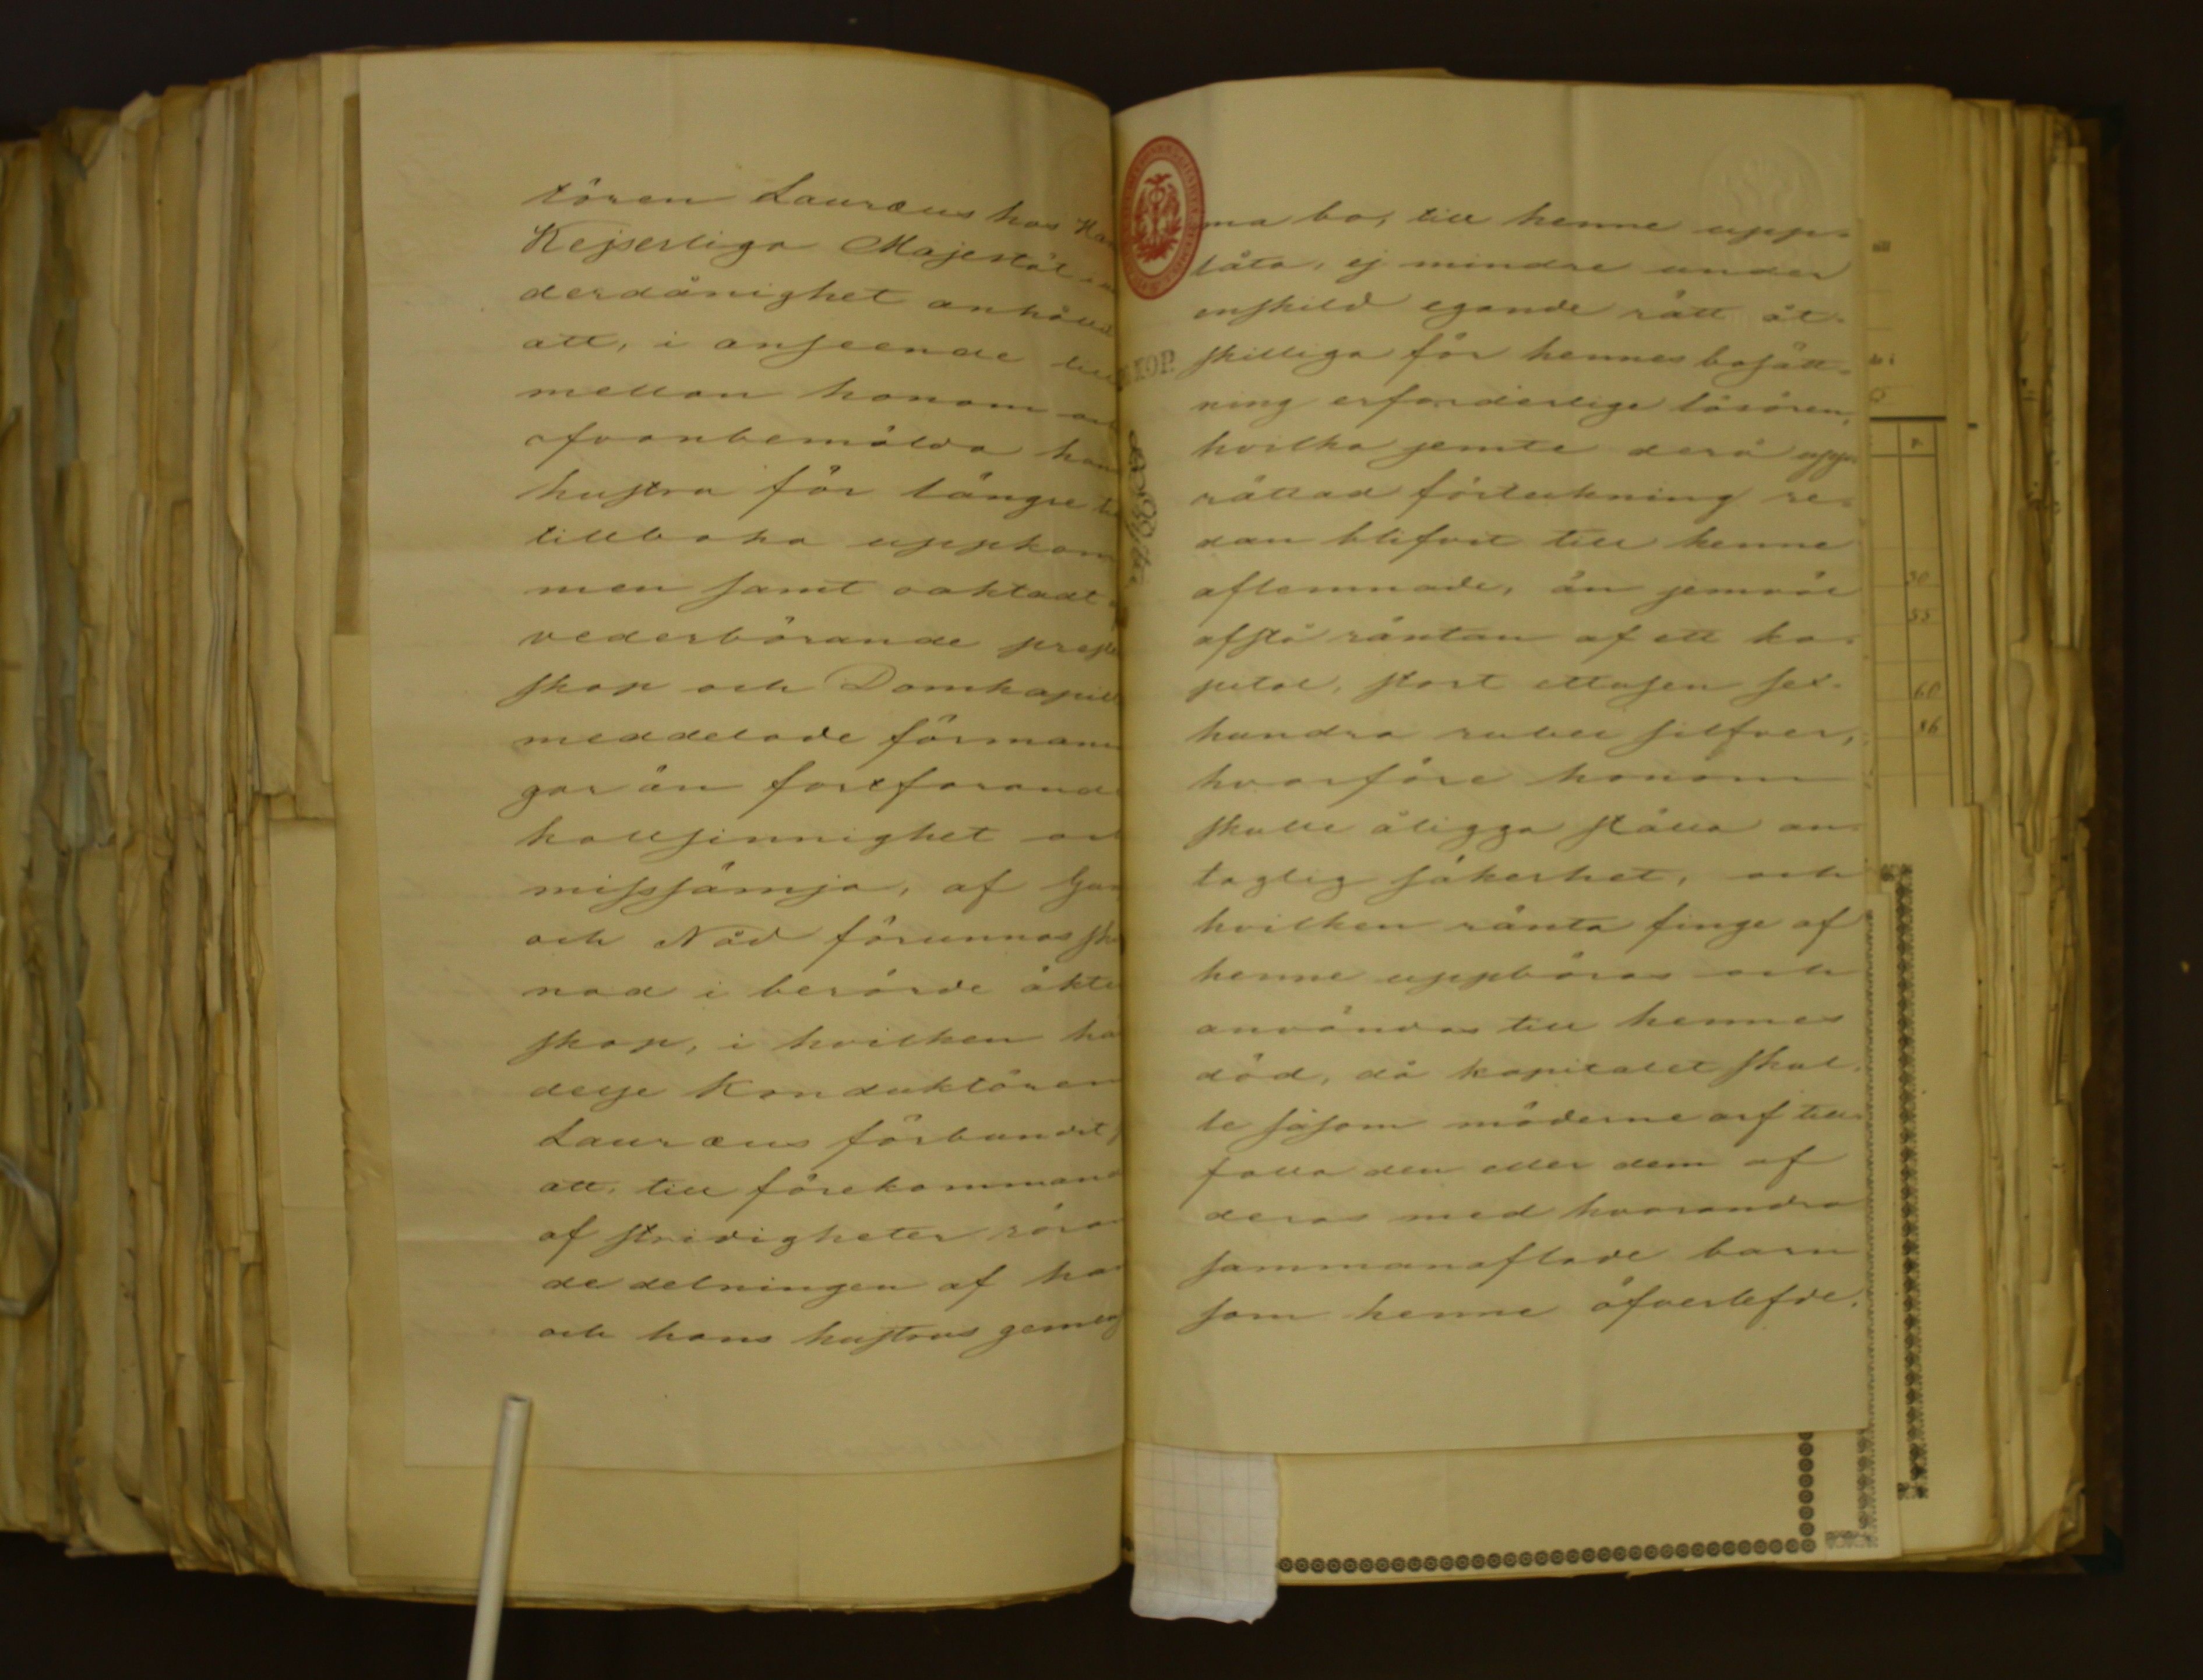 tören Lauræus hos Han
Kejserliga Majestät i un
derdånighet anhållit
att, i anseende till
mellan honom och
ofvanbemälda hans
hustru för längre tid
tillbaka uppkom
men samt oaktadt
vederbörande prester
skap och Domkapitl
meddelade förmanin
gar än fortfarande
kallsinnighet och
misssämja, af Gun
och Nåd förunnas ski
nad i berörde äkten
skap, i hvilken hän
delse Konduktören
Lauræus förbundit
att, till förekommand
af stridigheter röran
de delningen af hans
och hans hustrus gemen
ma bo, till henne upp-
låta, ej mindre under
enskild egande rätt åt-
skilliga för hennes bosätt-
ning erforderlige lösören,
hvilka jemte derå upp-
rättad förteckning re-
dan blifvit till henne
aflemnade, än jemväl
afstå räntan af ett ka-
pital, stort ettusen sex-
hundra rubel silfver,
hvarföre honom
skulle åligga ställa an-
taglig säkerhet, och
hvilken ränta finge af
henne uppbäras och
användas till hennes
död, då kapitalet skul-
le såsom möderne arf till-
falla den eller dem af
deras med hvarandra
sammanaflade barn
som henne öfverlefde.
KOP.
30
55
60
86